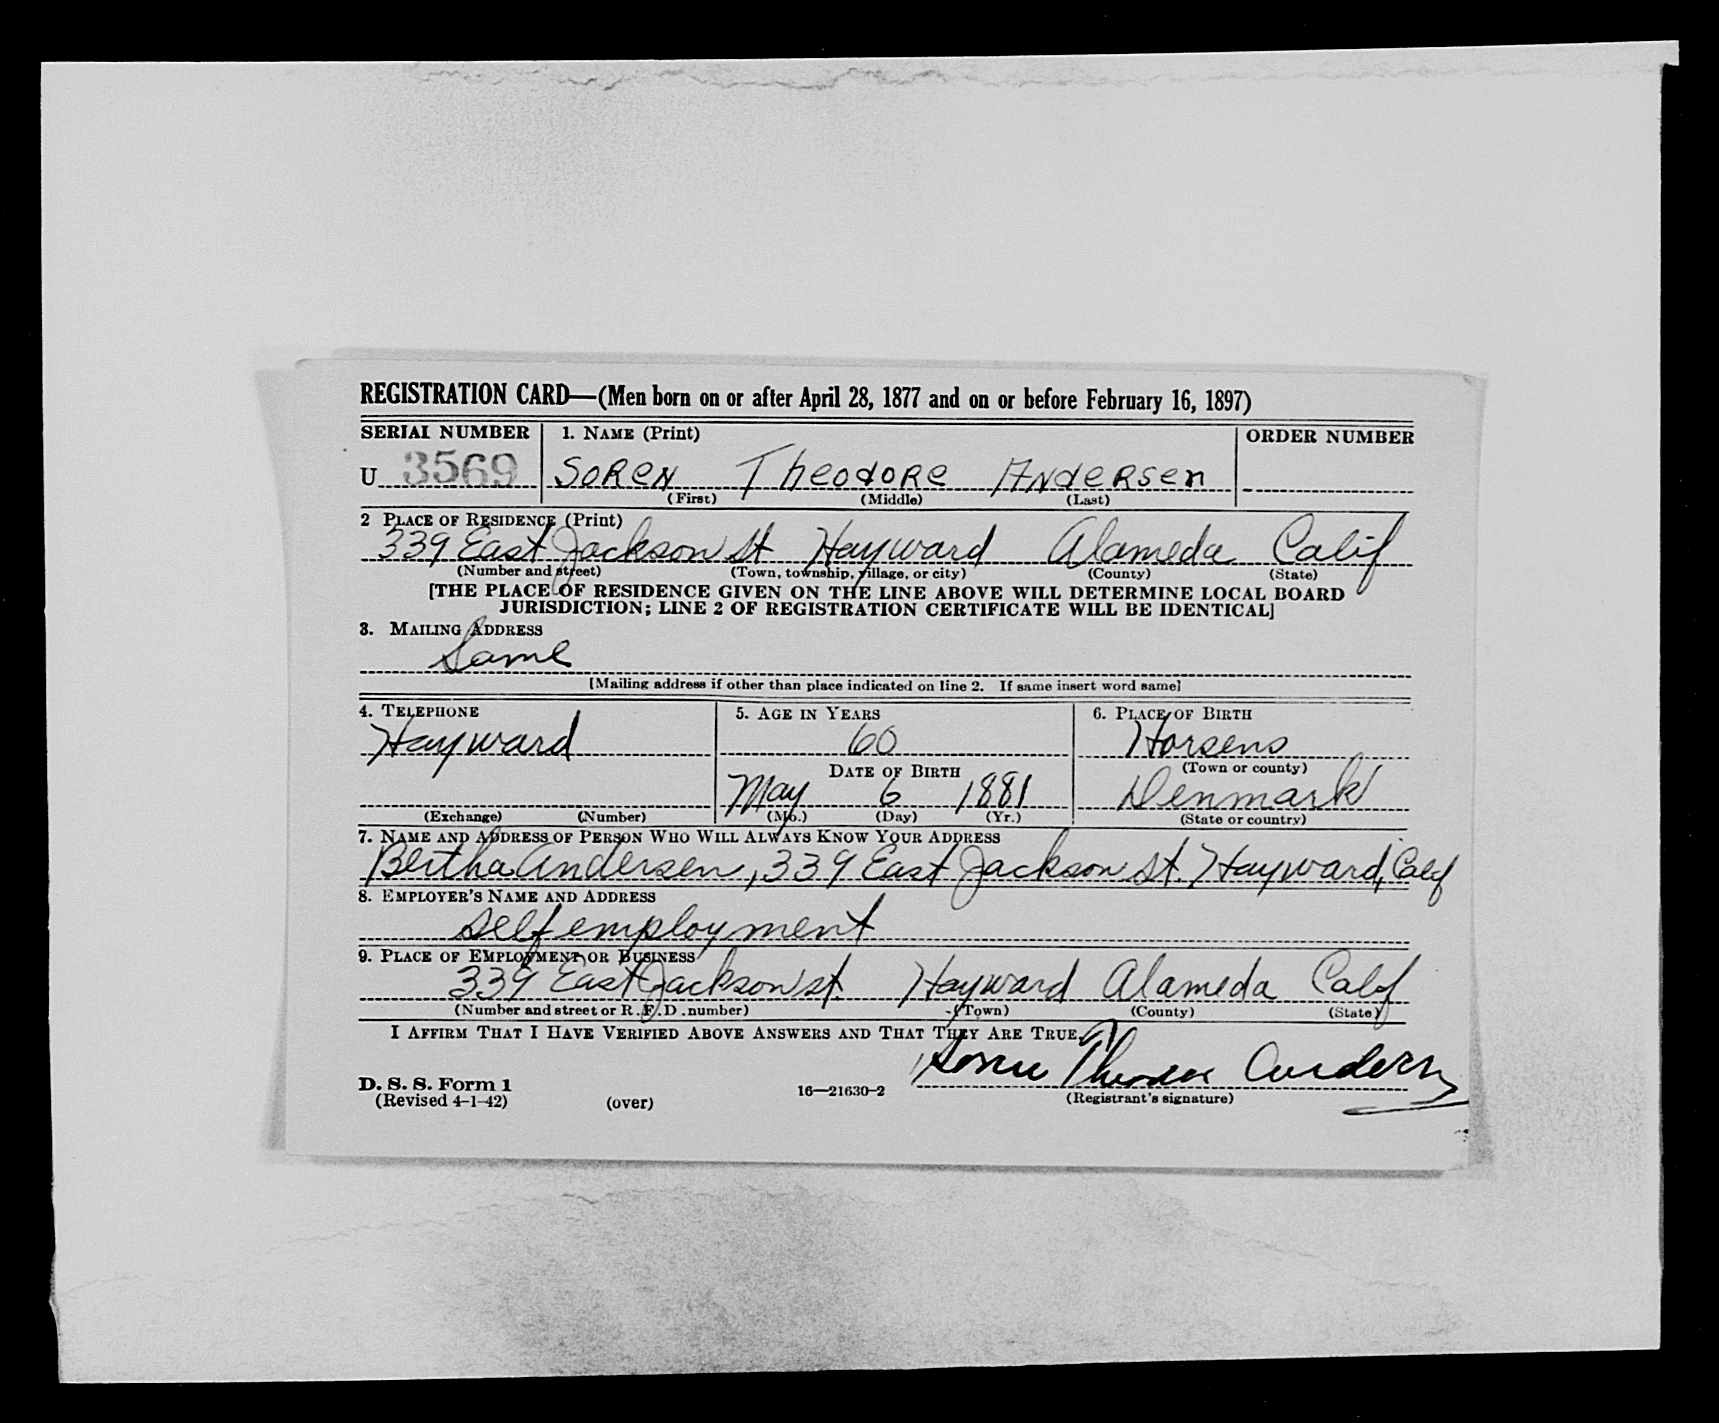 REGISTRATION CARD—(Men born on or after April 28, 1877 and on or before February 16, 1897)
SERIAL NUMBER 1. NAME (Print) ORDER NUMBER
U 3569 SOREN Theodore Andersen
(First) (Middle) (Last)
2 PLACE OF RESIDENCE (Print)
339 East Jackson St Hayward Alameda Calif
(Number and street) (Town, township, village, or city) (County) (State)
[THE PLACE OF RESIDENCE GIVEN ON THE LINE ABOVE WILL DETERMINE LOCAL BOARD
JURISDICTION; LINE 2 OF REGISTRATION CERTIFICATE WILL BE IDENTICAL]
3. MAILING ADDRESS
Same
[Mailing address if other than place indicated on line 2. If same insert word same]
4. TELEPHONE 5. AGE IN YEARS 6. PLACE OF BIRTH
Hayward 60 Horsens
DATE OF BIRTH (Town or county)
May 6 1881 Denmark
(Exchange) (Number) (Mo.) (Day) (Yr.) (State or country)
7. NAME AND ADDRESS OF PERSON WHO WILL ALWAYS KNOW YOUR ADDRESS
Bertha Andersen, 339 East Jackson St. Hayward, Calif
8. EMPLOYER'S NAME AND ADDRESS
self employment
9. PLACE OF EMPLOYMENT OR BUSINESS
339 East Jackson St. Hayward Alameda Calif
(Number and street or R. F. D. number) (Town) (County) (State)
I AFFIRM THAT I HAVE VERIFIED ABOVE ANSWERS AND THAT THEY ARE TRUE.
Soren Theodore Andersen
D. S. S. Form 1 16—21630-2
(Revised 4-1-42) (over) (Registrant's signature)